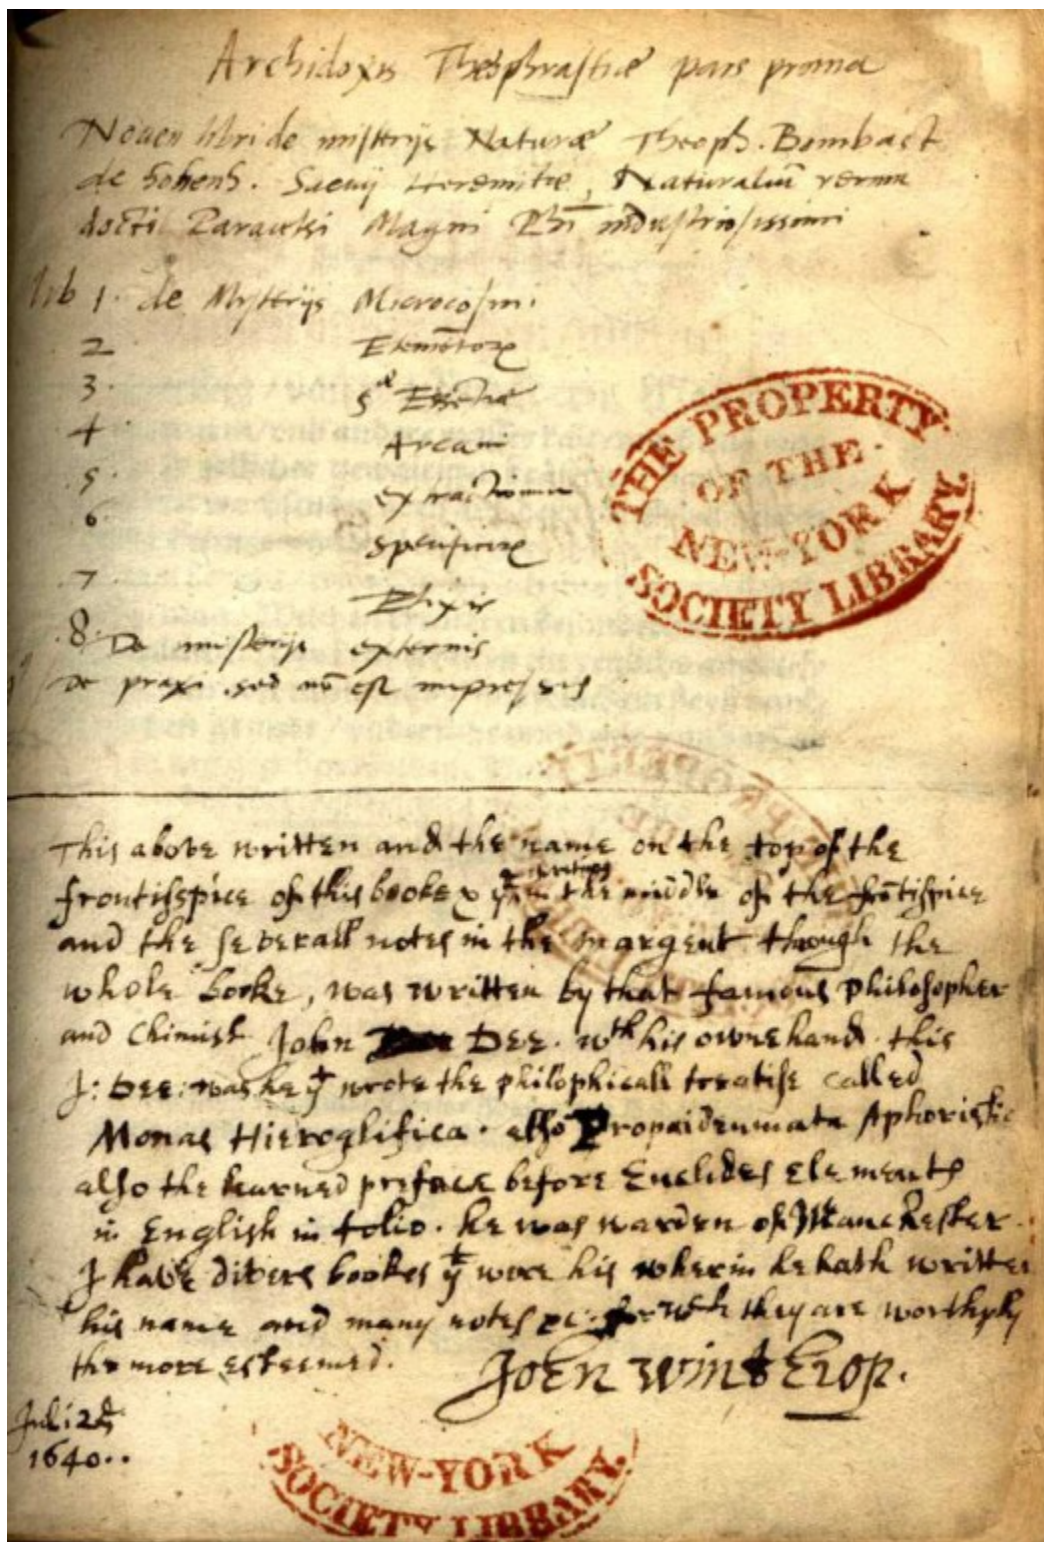 Archidoxis Theophrasticæ pars prima
Novem libri de misterijs Naturæ Theoph. Bombast
de Hohenh. Heremitæ, Naturaliū rerum
Magni industriosissimi
lib 1. de Mysterijs Microcosmi
2
3.
4
5
6
7
8. De misterijs externis
De praxi sed nō est impressus
THE PROPERTY
OF THE
NEW-YORK
SOCIETY LIBRARY.
This above written and the name on the top of the
frontisspice of this booke & writing
the middle of the frōtispice
and the severall notes in the margent through the
whole booke, was written by that famous philosopher
and Chimist John Dee. wth his owne hand. this
J: Dee: was he yt wrote the philophicall treatise called
Monas Hieroglifica. also Propaideumata Aphoristic
also the learned preface before Euclides elements
in English in folio. he was warden of Manchester.
I have divers bookes yt were his wherin he hath written
his name and many notes for wch they are worthyly
the more esteemed.
John Winthrop.
Juli:
1640..
NEW-YORK
SOCIETY LIBRARY.